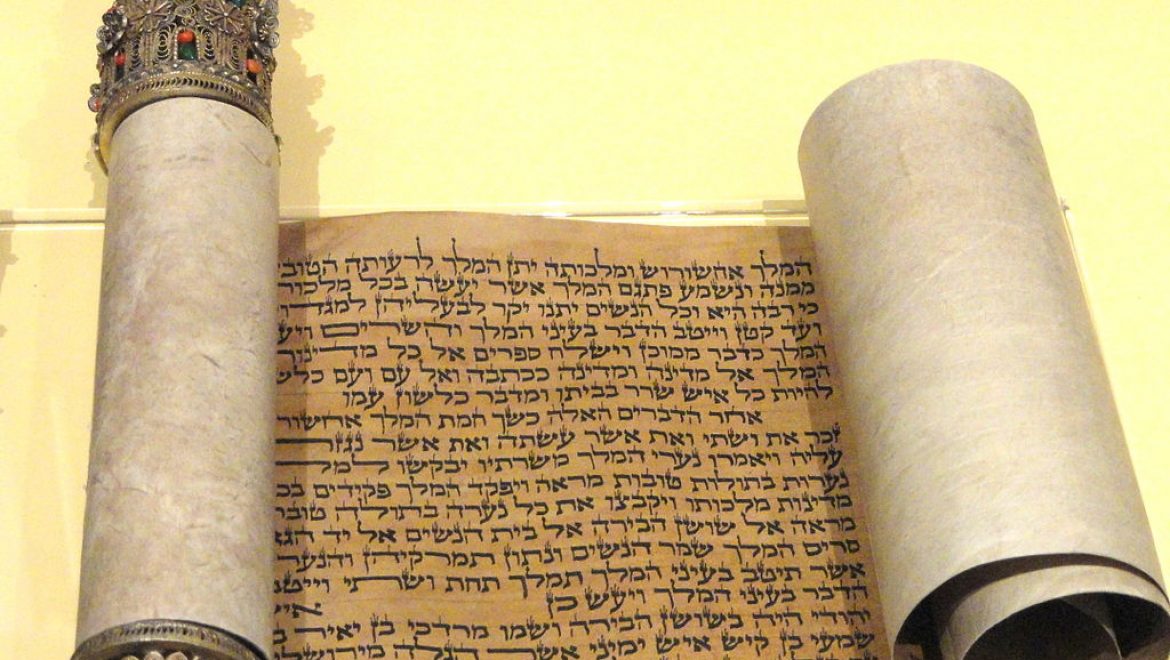 המלך אחשורוש ומלכותה יתן המלך לרעותה הטוב
ממנה ונשמע פתגם המלך אשר יעשה בכל מלכות
כי רבה היא וכל הנשים יתנו יקר לבעליהן למגד
ועד קטן וייטב הדבר בעיני המלך והשרים ויע
המלך כדבר ממוכן וישלח ספרים אל כל מדינות
המלך אל מדינה ומדינה ככתבה ואל עם ועם כלש
להיות כל איש שרר בביתו ומדבר כלשון עמו
אחר הדברים האלה כשך חמת המלך אחשור
זכר את ושתי ואת אשר עשתה ואת אשר נגזר
עליה ויאמרו נערי המלך משרתיו יבקשו למל
נערות בתולות טובות מראה ויפקד המלך פקידים בכ
מדינות מלכותו ויקבצו את כל נערה בתולה טוב
מראה אל שושן הבירה אל בית הנשים אל יד הגא
סריס המלך שמר הנשים ונתון תמרקיהן והנער
אשר תיטב בעיני המלך תמלך תחת ושתי וייטב
הדבר בעיני המלך ויעש כן אי
יהודי היה בשושן הבירה ושמו מרדכי בן יאיר ב
שמעי בן קיש איש ימיני אשר הגלה מירושל